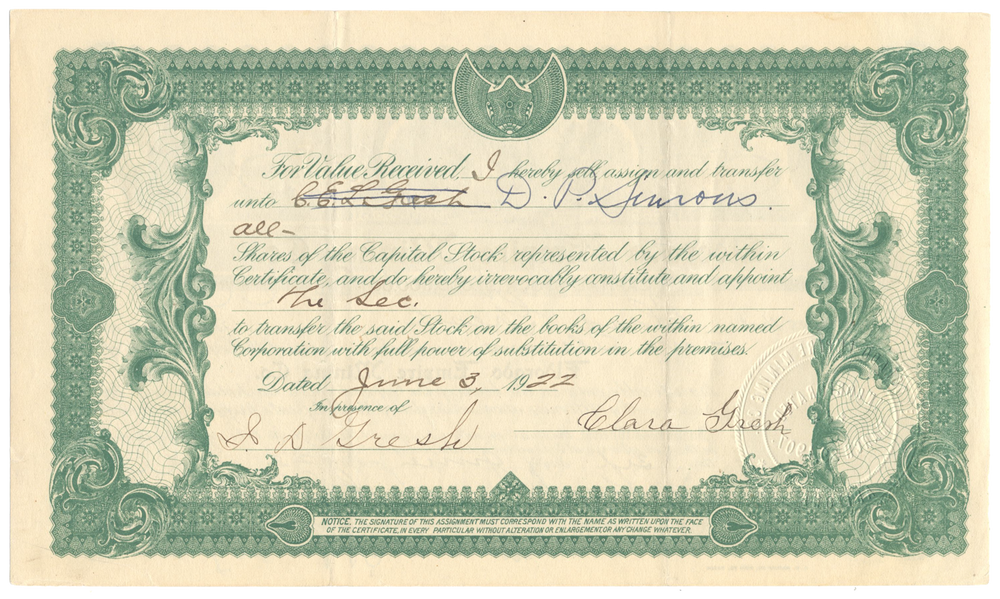 For Value Received, I hereby sell, assign and transfer
unto C E L Gresh D. P. Simrons.
all-
Shares of the Capital Stock represented by the within
Certificate, and do hereby irrevocably constitute and appoint
The Sec.
to transfer the said Stock on the books of the within named
Corporation with full power of substitution in the premises.
Dated June 3, 1922
In presence of
Clara Gresh
J. D Gresh
NOTICE. THE SIGNATURE OF THIS ASSIGNMENT MUST CORRESPOND WITH THE NAME AS WRITTEN UPON THE FACE
OF THE CERTIFICATE, IN EVERY PARTICULAR WITHOUT ALTERATION OR ENLARGEMENT OR ANY CHANGE WHATEVER.